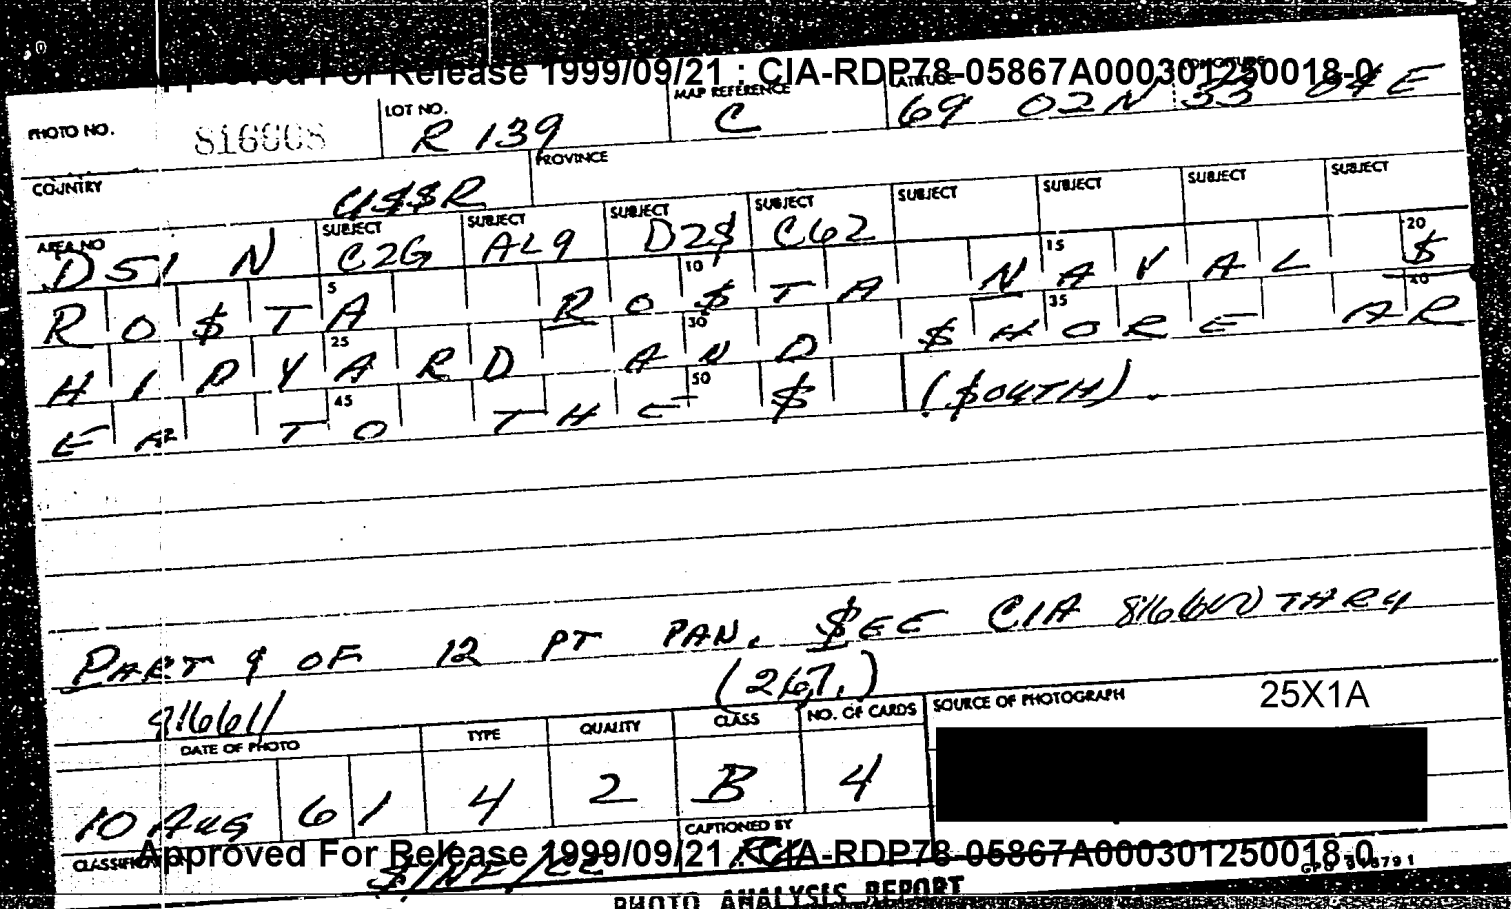 Approved For Release 1999/09/21 : CIA-RDP78-05867A000301250018-0
PHOTO NO. LOT NO. R 139 MAP REFERENCE C LATITUDE 69 02N LONGITUDE 33 04 E
COUNTRY U$$R PROVINCE
AREA NO D51 N SUBJECT C2G SUBJECT AL9 SUBJECT D2$ SUBJECT C62 SUBJECT SUBJECT SUBJECT SUBJECT
RO$TA RO$TA NAVAL $
HIPYARD AND $HORE AR
EA TO THE $ ($OUTH).
PART 9 OF 12 PT PAN. $EE CIA THRU
816611 (267.)
DATE OF PHOTO TYPE QUALITY CLASS NO. OF CARDS SOURCE OF PHOTOGRAPH 25X1A
10 Aug 6 1 4 2 B 4
CAPTIONED BY
CLASSIFICATION
Approved For Release 1999/09/21 : CIA-RDP78-05867A000301250018-0
PHOTO ANALYSIS REPORT